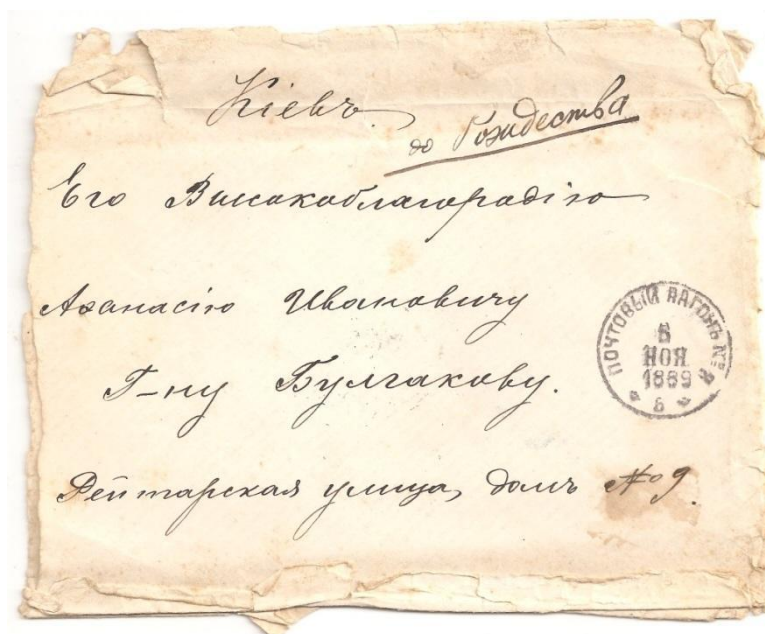 Кіевъ.
до Рождества
Его Высокоблагородію
Аѳанасію Ивановичу
Г-ну Булгакову.
Рейтарская улица, домъ №9.
ПОЧТОВЫЙ ВАГОНЪ № 2
6
НОЯ
1889